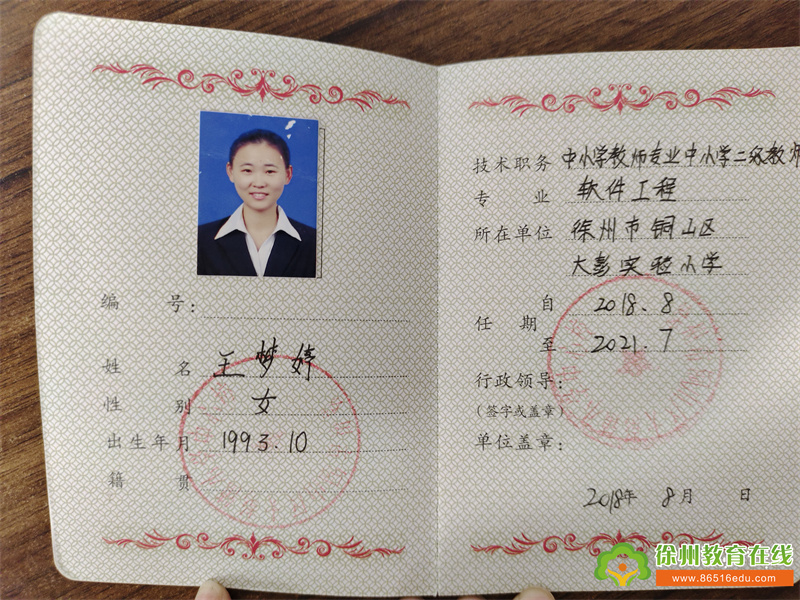 编 号：
姓 名 王梦婷
性 别 女
出生年月 1993.10
籍 贯
技术职务 中小学教师专业中小学二级教师
专 业 软件工程
所在单位 徐州市铜山区
大彭实验小学
自 2018.8
任 期
至 2021.7
行政领导：
（签字或盖章）
单位盖章：
2018年 8月 日
徐州教育在线
www.86516edu.com